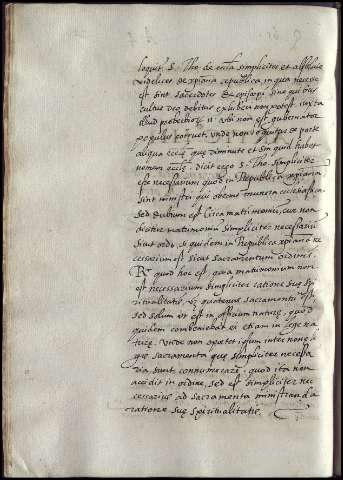 loquit̃. S. Tho. de eccl̃ia simpliciter et absolute
videlicet de xp̃iana republica, in qua necesse
est sint sacerdotes et episcopi sine quibus
cultus deo debitus exhiberi non potest. iuxta
illud proverbiorũ 11. ubi non est gubernator
populus corruet, unde non loquitur de parte
aliqua ecclĩę, quę diminute et secũ quid habet
nomen ecclĩę. dicit ergo S. Tho. simpliciter
esse necessarium quod in Republica xp̃iana
sint ministri qui obeant munera ecclesiastica
sed dubium est circa matrimoniũ, cur non
dicitur matrimoniũ simpliciter necessariũ
sicut ordo, siquidem in Republica xp̃iana ne
cessarium est sicut sacramentum ordinis.
R. quod hoc est quia matrimonium non
est necessarium simpliciter ratione suę spi
ritualitatis, vz quatenus sacramentũ est,
sed solum ut est in officium naturę, quod
quidem conveniebat ei etiam in lege na
turę. Unde non oportet illum inter nonnulla
quę sacramenta quę simpliciter necessa
ria sunt connumerare, quod ita non
accidit in ordine, sed est simpliciter ne
cessarius ad sacramenta ministranda
ratione suę spiritualitatis.